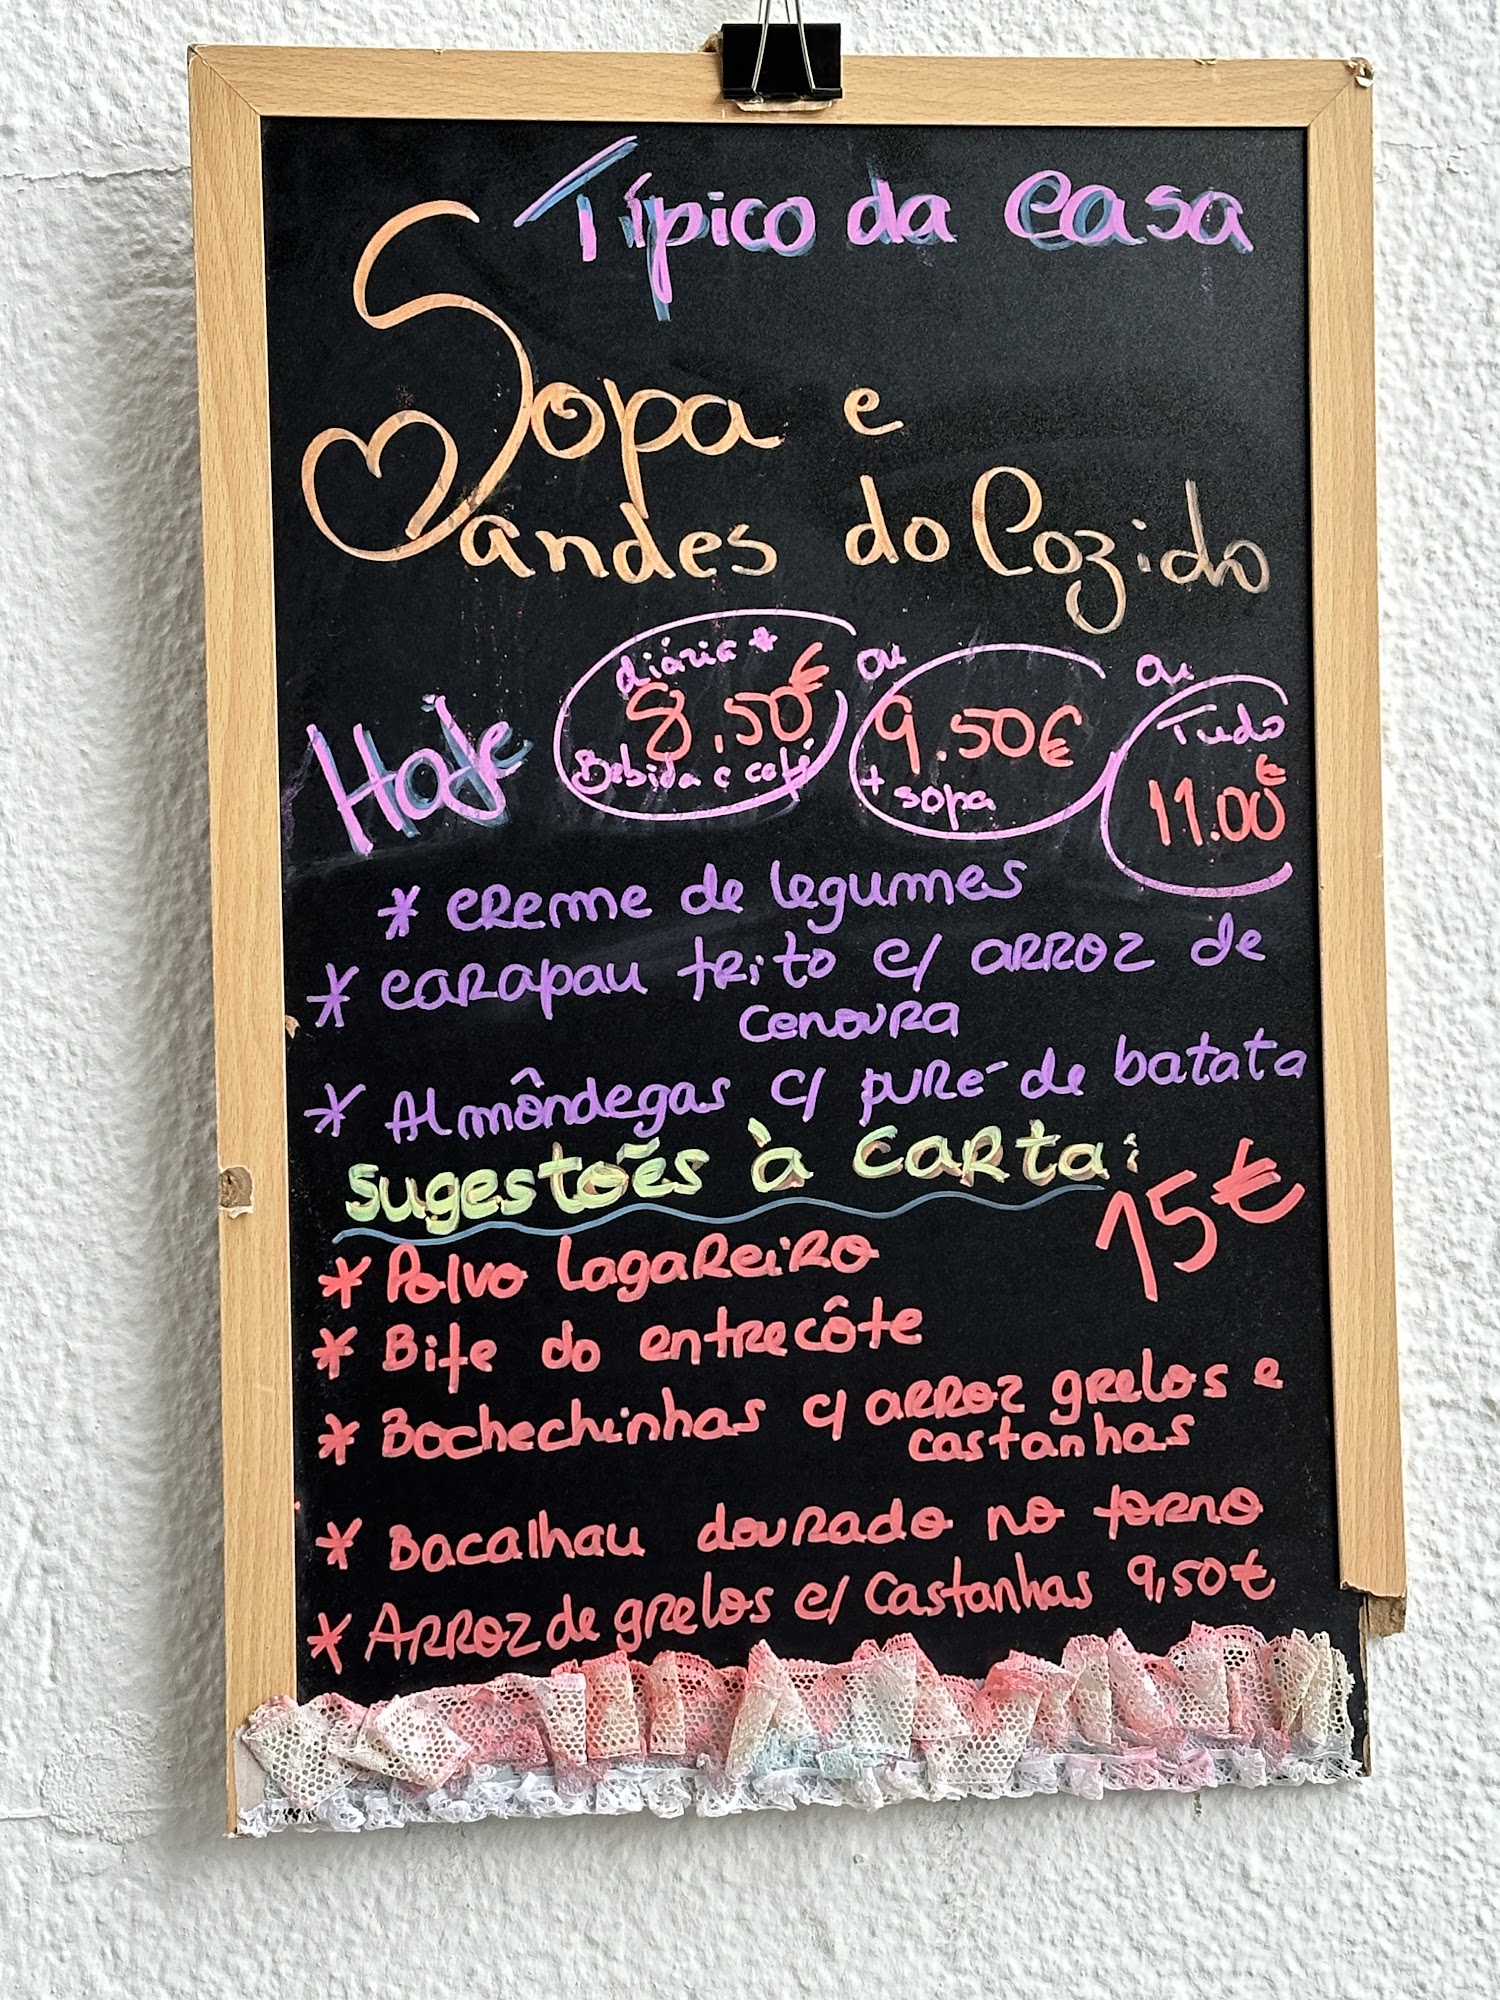 Típico da casa
Sopa e
Sandes do Cozido
Hoje
diária *
8,50€
Bebida e café
ou
9.50€
+ sopa
ou
Tudo
11.00€
* creme de legumes
* carapau frito c/ arroz de
cenoura
* Almôndegas c/ puré de batata
Sugestões à carta:
15€
* Polvo Lagareiro
* Bife do entrecôte
* Bochechinhas c/ arroz grelos e
castanhas
* Bacalhau dourado no forno
* Arroz de grelos c/ Castanhas 9,50€